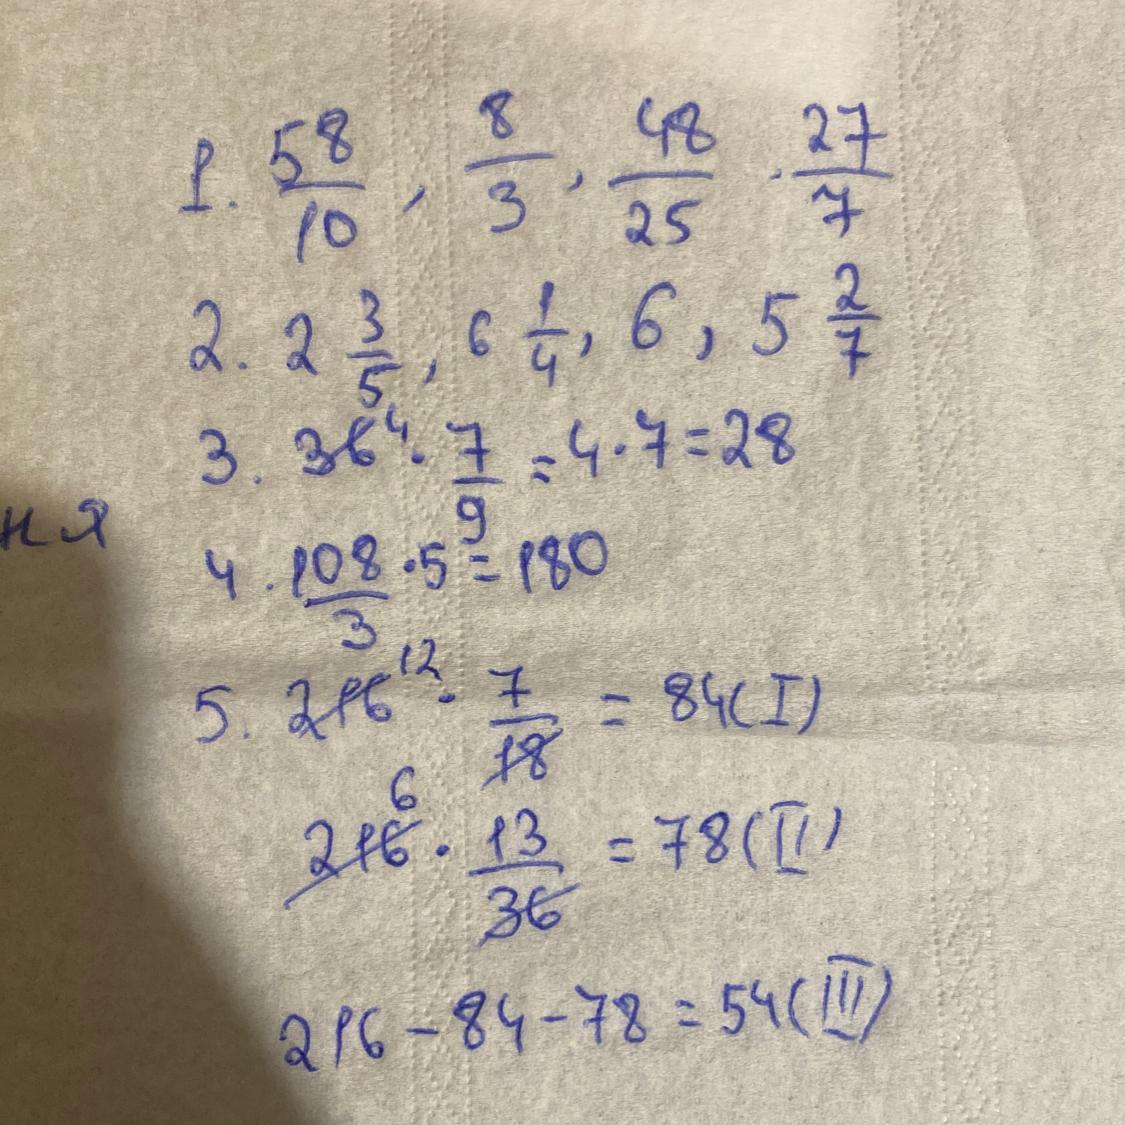 1. 58/10, 8/3, 48/25. 27/7
2. 2 3/5, 6 1/4, 6, 5 2/7
3. 36⁴ · 7/9 = 4 · 7 = 28
ня
4. 108/3 · 5 = 180
5. 216¹² · 7/18 = 84 (I)
216⁶ · 13/36 = 78 (II)
216 - 84 - 78 = 54 (III)